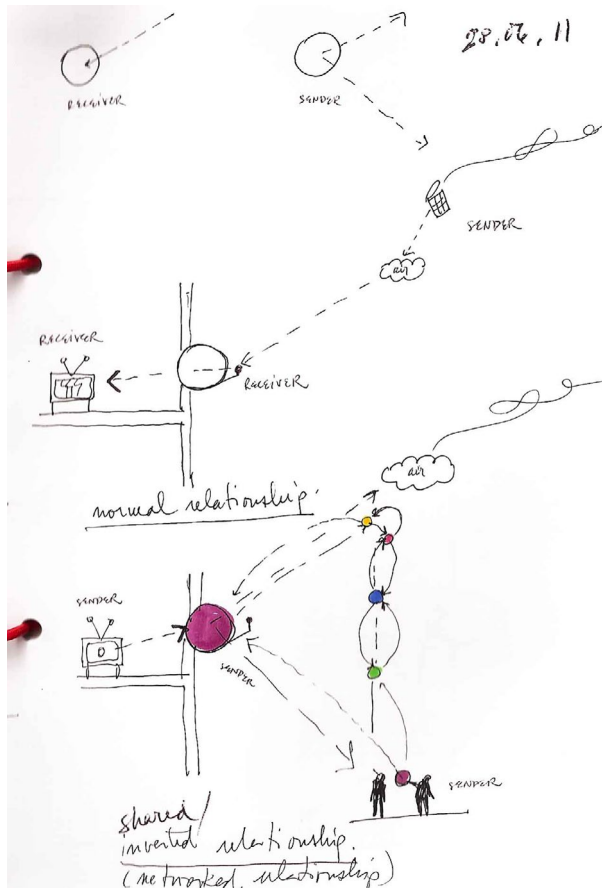 28.06.11
RECEIVER
SENDER
SENDER
air
RECEIVER
RECEIVER
air
normal relationship.
SENDER
SENDER
SENDER
shared/
inverted relationship.
(networked relationship)